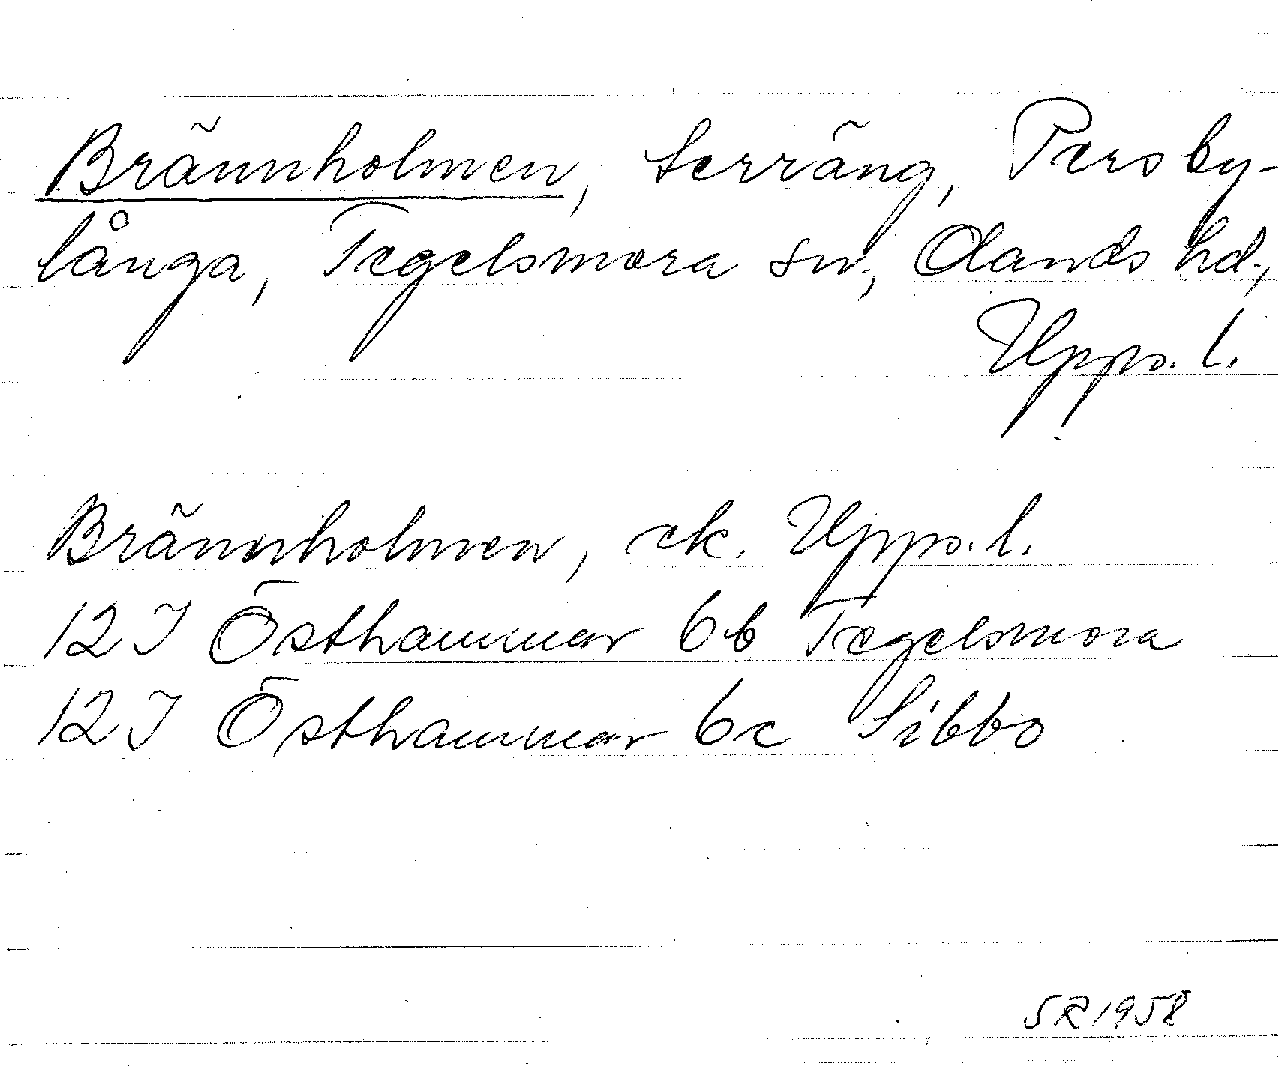 Brännholmen, terräng, Persby-
långa, Tegelsmora sn, Olands hd.,
Upps. l.
Brännholmen, ek. Upps. l.
12 I Östhammar 6b Tegelsmora
12 I Östhammar 6c Sibbo
SR 1958